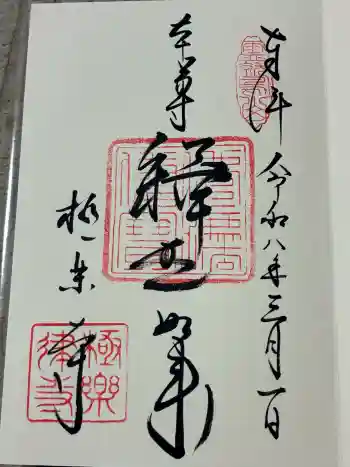 奉拝 令和八年三月一日
本尊
釋迦如来
極楽寺
極樂律寺